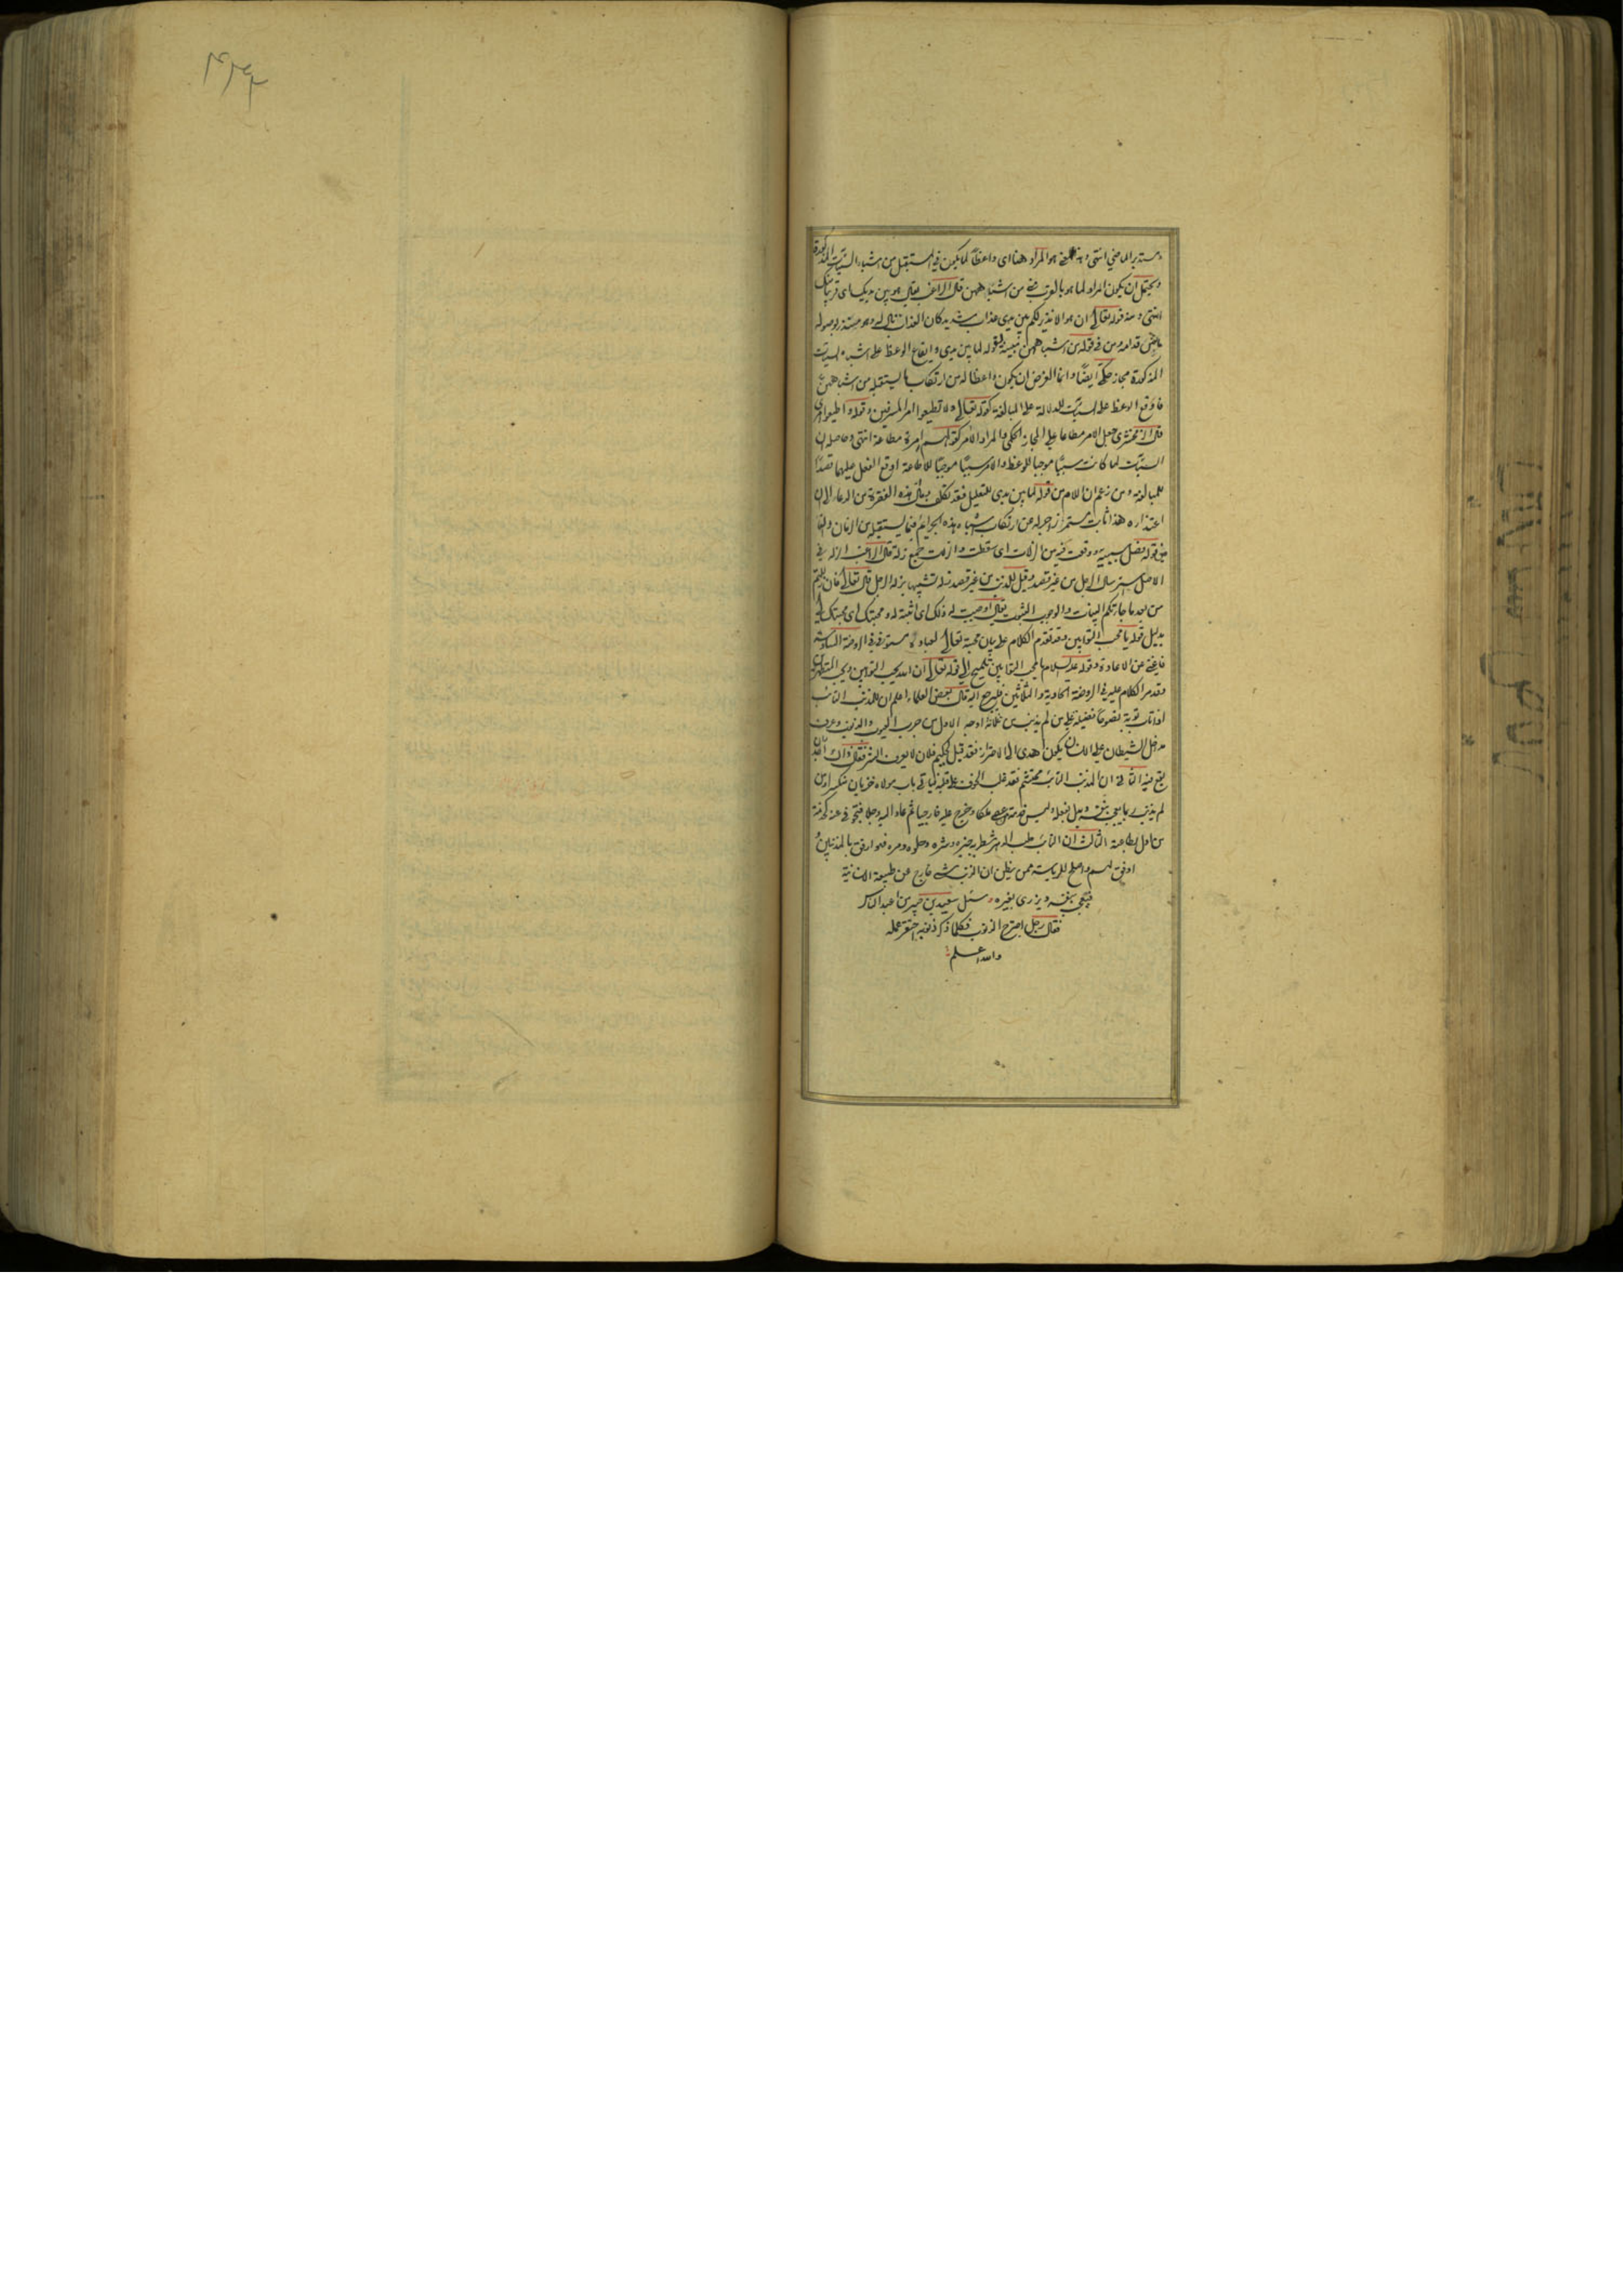 ومستدبر الماضي انتهى وهذا المعنى هو المراد هنا اى واعظاً لما يكون في المستقبل من اشباه السيّئات المذكورة
ويحتمل ان يكون المراد لما هو بالقرب مني من اشباههن قال الراغب يقال هو بين يديك اى قريباً منك
انتهى ومنه قوله تعالى ان هو الا نذير لكم بين يدى عذاب شديد كان العذاب
قدامه ومن في قوله من اشباههن مبينة لقوله لما بين يدى وايقاع الوعظ على اشباه السيئات
المذكورة مجاز حكمى ايضاً وانما الغرض ان يكون واعظا له من ارتكاب ما يستقبله من اشباههن
فاوقع الوعظ على السيئات للدلالة على المبالغة كقوله تعالى ولا تطيعوا امر المسرفين وقوله واطيعوا امرى
قال الزمخشرى جعل الامر مطاعا على المجاز الحكمى والمراد الآمر كقولهم امرة مطاعة انتهى وحاصله ان
السيئات لما كانت سبباً موجباً للوعظ والامر سبباً موجباً للاطاعة اوقع الفعل عليهما قصداً
للمبالغة ومن زعم ان اللام من قوله لما بين يدى للتعليل فقد تكلف ومعنى هذه الفقرة من الدعاء ان
اعتذاره هذا ثابت مستمر زاجر له عن ارتكاب اشباه هذه الجرائم فيما يستقبله من الزمان والفاء
من قوله فصل سببية ووقعت فيه من الزلات اى سقطت والزلات جمع زلة قال الراغب الزلة في
الاصل استرسال الرجل من غير قصد وقيل للذنب من غير قصد زلة تشبيها بزلة الرجل قال تعالى فان زللتم
من بعد ما جاءتكم البينات والوجوب الثبوت يقال اوجبت له ذلك اى اثبته له ومحبتك اى محبتك لى
بدليل قوله يا محب التوابين وقد تقدم الكلام على بيان محبة تعالى لعباده مستوفى في الروضة السادسة
فاغنى عن الاعادة وقوله عليه السلام يا محب التوابين تلميح الى قوله تعالى ان الله يحب التوابين ويحب المتطهرين
وقد مر الكلام عليه في الروضة الحادية والثلاثين فليرجع اليه قال بعض العلماء اعلم ان للمذنب التائب
اذا تاب توبة نصوحاً فضيلة على من لم يذنب من ثلاثة اوجه الاول من جرب العيوب والذنوب وعرف
مدخل الشيطان على الانسان يكون اهدى الى الاحتراز فقد قيل لحكيم فلان لا يعرف الشر فقال ذاك اجدر ان
يقع فيه الثاني ان المذنب التائب محتشم فقد غلب الخوف على قلبه فياتي باب مولاه خزيان منكسراً ومن
لم يذنب ربما يعجب بنفسه ويدل بفعله وليس خدمة من عصى ملكا وخرج عليه خارجياً ثم عاد اليه وجلا فيتحرى في خدمته كخدمة
من اول بطاعته الثالث ان التائب حلب الدهر شطريه خيره وشره وحلوه ومره فهو ارفق بالمذنبين و
اوفق لهم واصلح للرياسة ممن يظن ان الذنب شيء خارج عن طبيعة الانسانية
فيعجب بنفسه ويزرى بغيره وسئل سعيد بن جبير من اعبد الناس
فقال رجل اجترح الذنوب فكلما ذكر ذنوبه احتقر عمله
والله اعلم